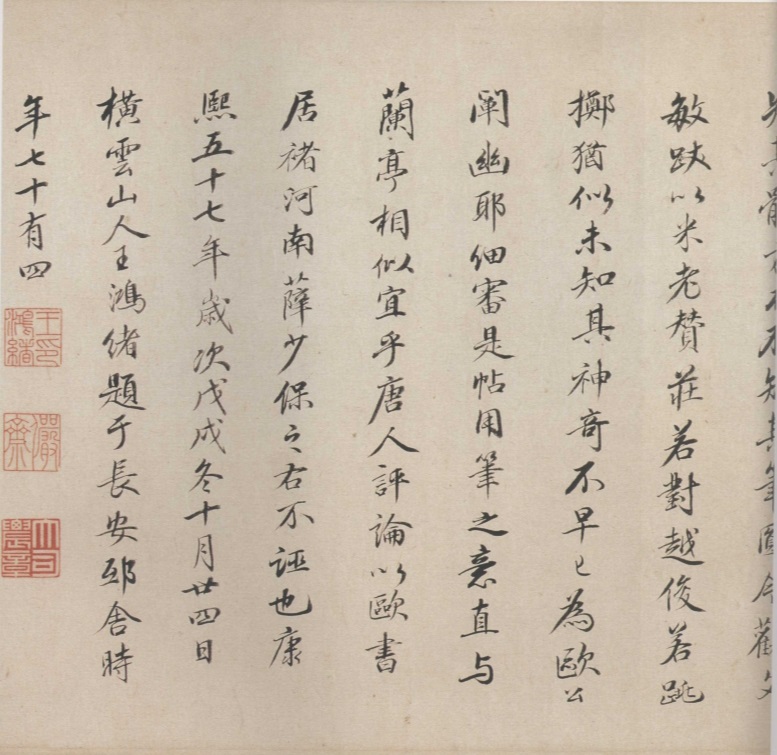 知其筆圓今觀文
敏跋以米老贊莊若對越俊若跳
擲猶似未知其神奇不早已為歐公
闡幽耶細審是帖用筆之意直与
蘭亭相似宜乎唐人評論以歐書
居褚河南薛少保之右不誣也康
熙五十七年歲次戊戌冬十月廿四日
橫雲山人王鴻緒題于長安邸舍時
年七十有四
王鴻緒印
儼齋
大司農章